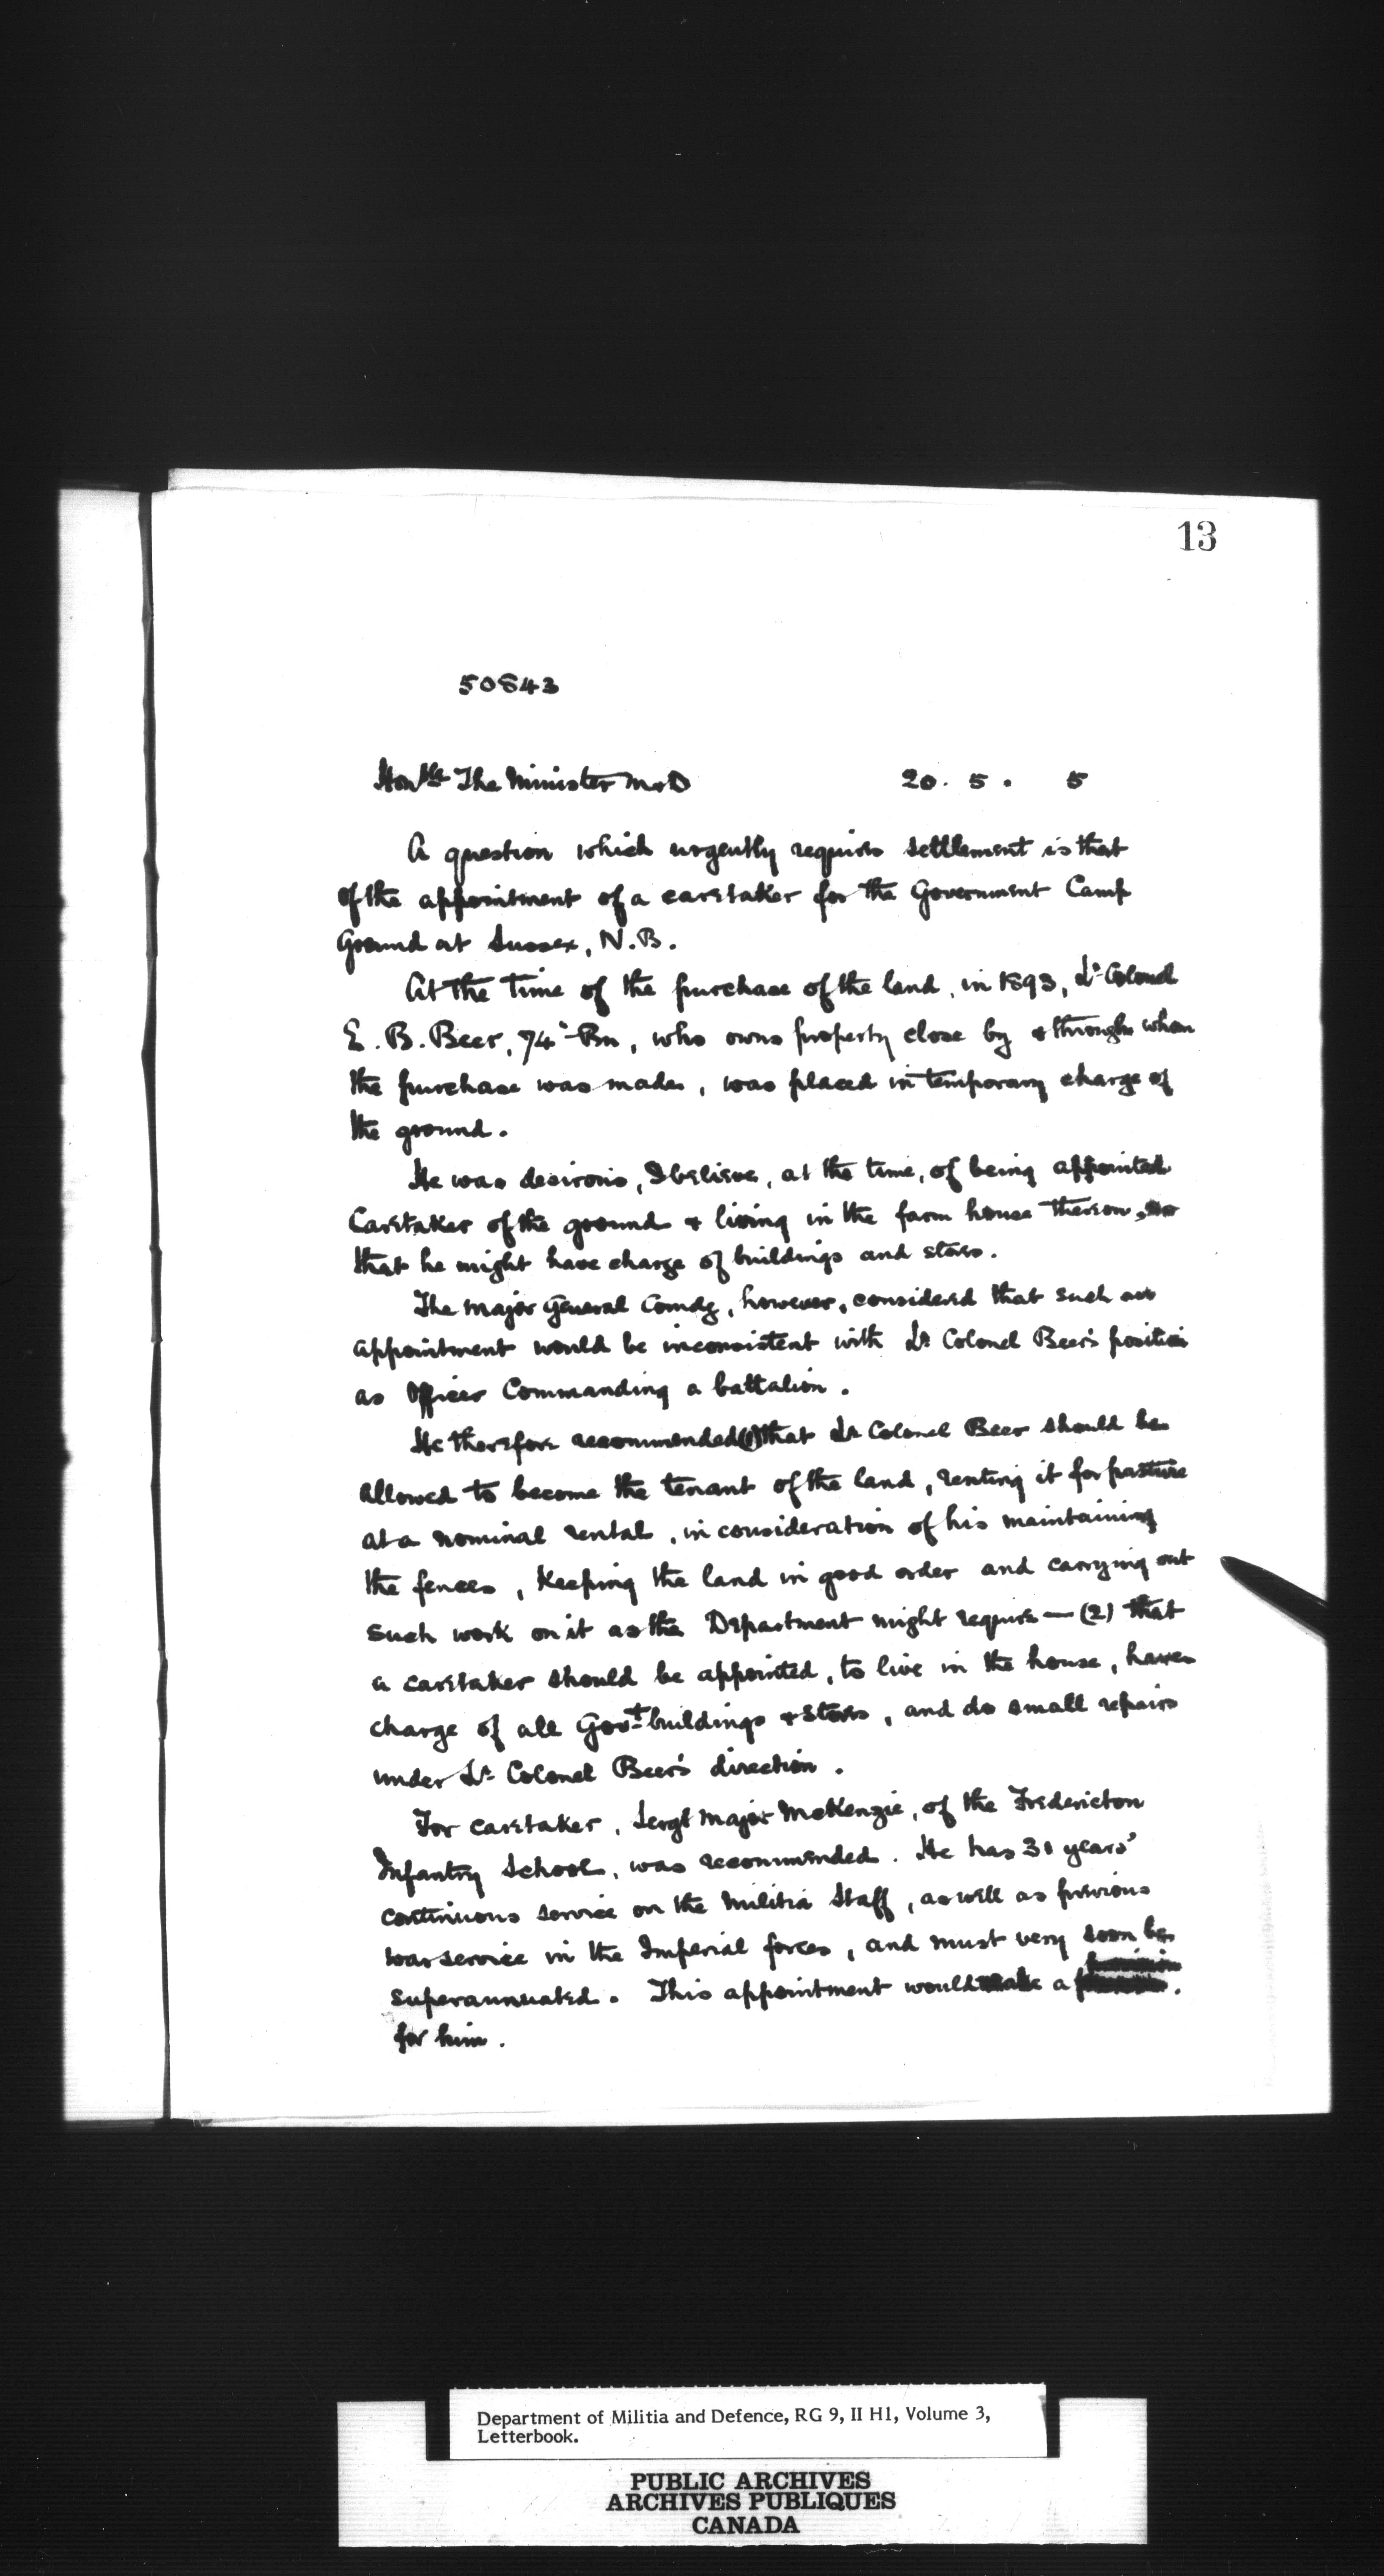 13
50843
Honble The Minister M & D 20. 5. 5
A question which urgently requires settlement is that
of the appointment of a caretaker for the Government Camp
Ground at Sussex, N.B.
At the time of the purchase of the land, in 1893, Lt. Colonel
E. B. Beer, 74th Bn, who owns property close by & through whom
the purchase was made, was placed in temporary charge of
the ground.
He was desirous, I believe, at the time, of being appointed
Caretaker of the ground & living in the farm house thereon, so
that he might have charge of buildings and stores.
The Major General Comdg, however, considered that such an
appointment would be inconsistent with Lt. Colonel Beer's position
as Officer Commanding a battalion.
He therefore recommended (1) that Lt. Colonel Beer should be
allowed to become the tenant of the land, renting it for pasture
at a nominal rental, in consideration of his maintaining
the fences, keeping the land in good order and carrying out
such work on it as the Department might require — (2) that
a caretaker should be appointed, to live in the house, have
charge of all Govt. buildings & stores, and do small repairs
under Lt. Colonel Beer's direction.
For caretaker, Sergt Major McKenzie, of the Fredericton
Infantry School, was recommended. He has 30 years'
continuous service on the Militia Staff, as well as previous
war service in the Imperial forces, and must very soon be
superannuated. This appointment would make a
for him.
Department of Militia and Defence, RG 9, II H1, Volume 3,
Letterbook.
PUBLIC ARCHIVES
ARCHIVES PUBLIQUES
CANADA